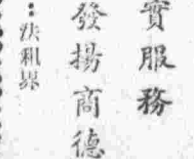 實服務
發揚商德
：法租界